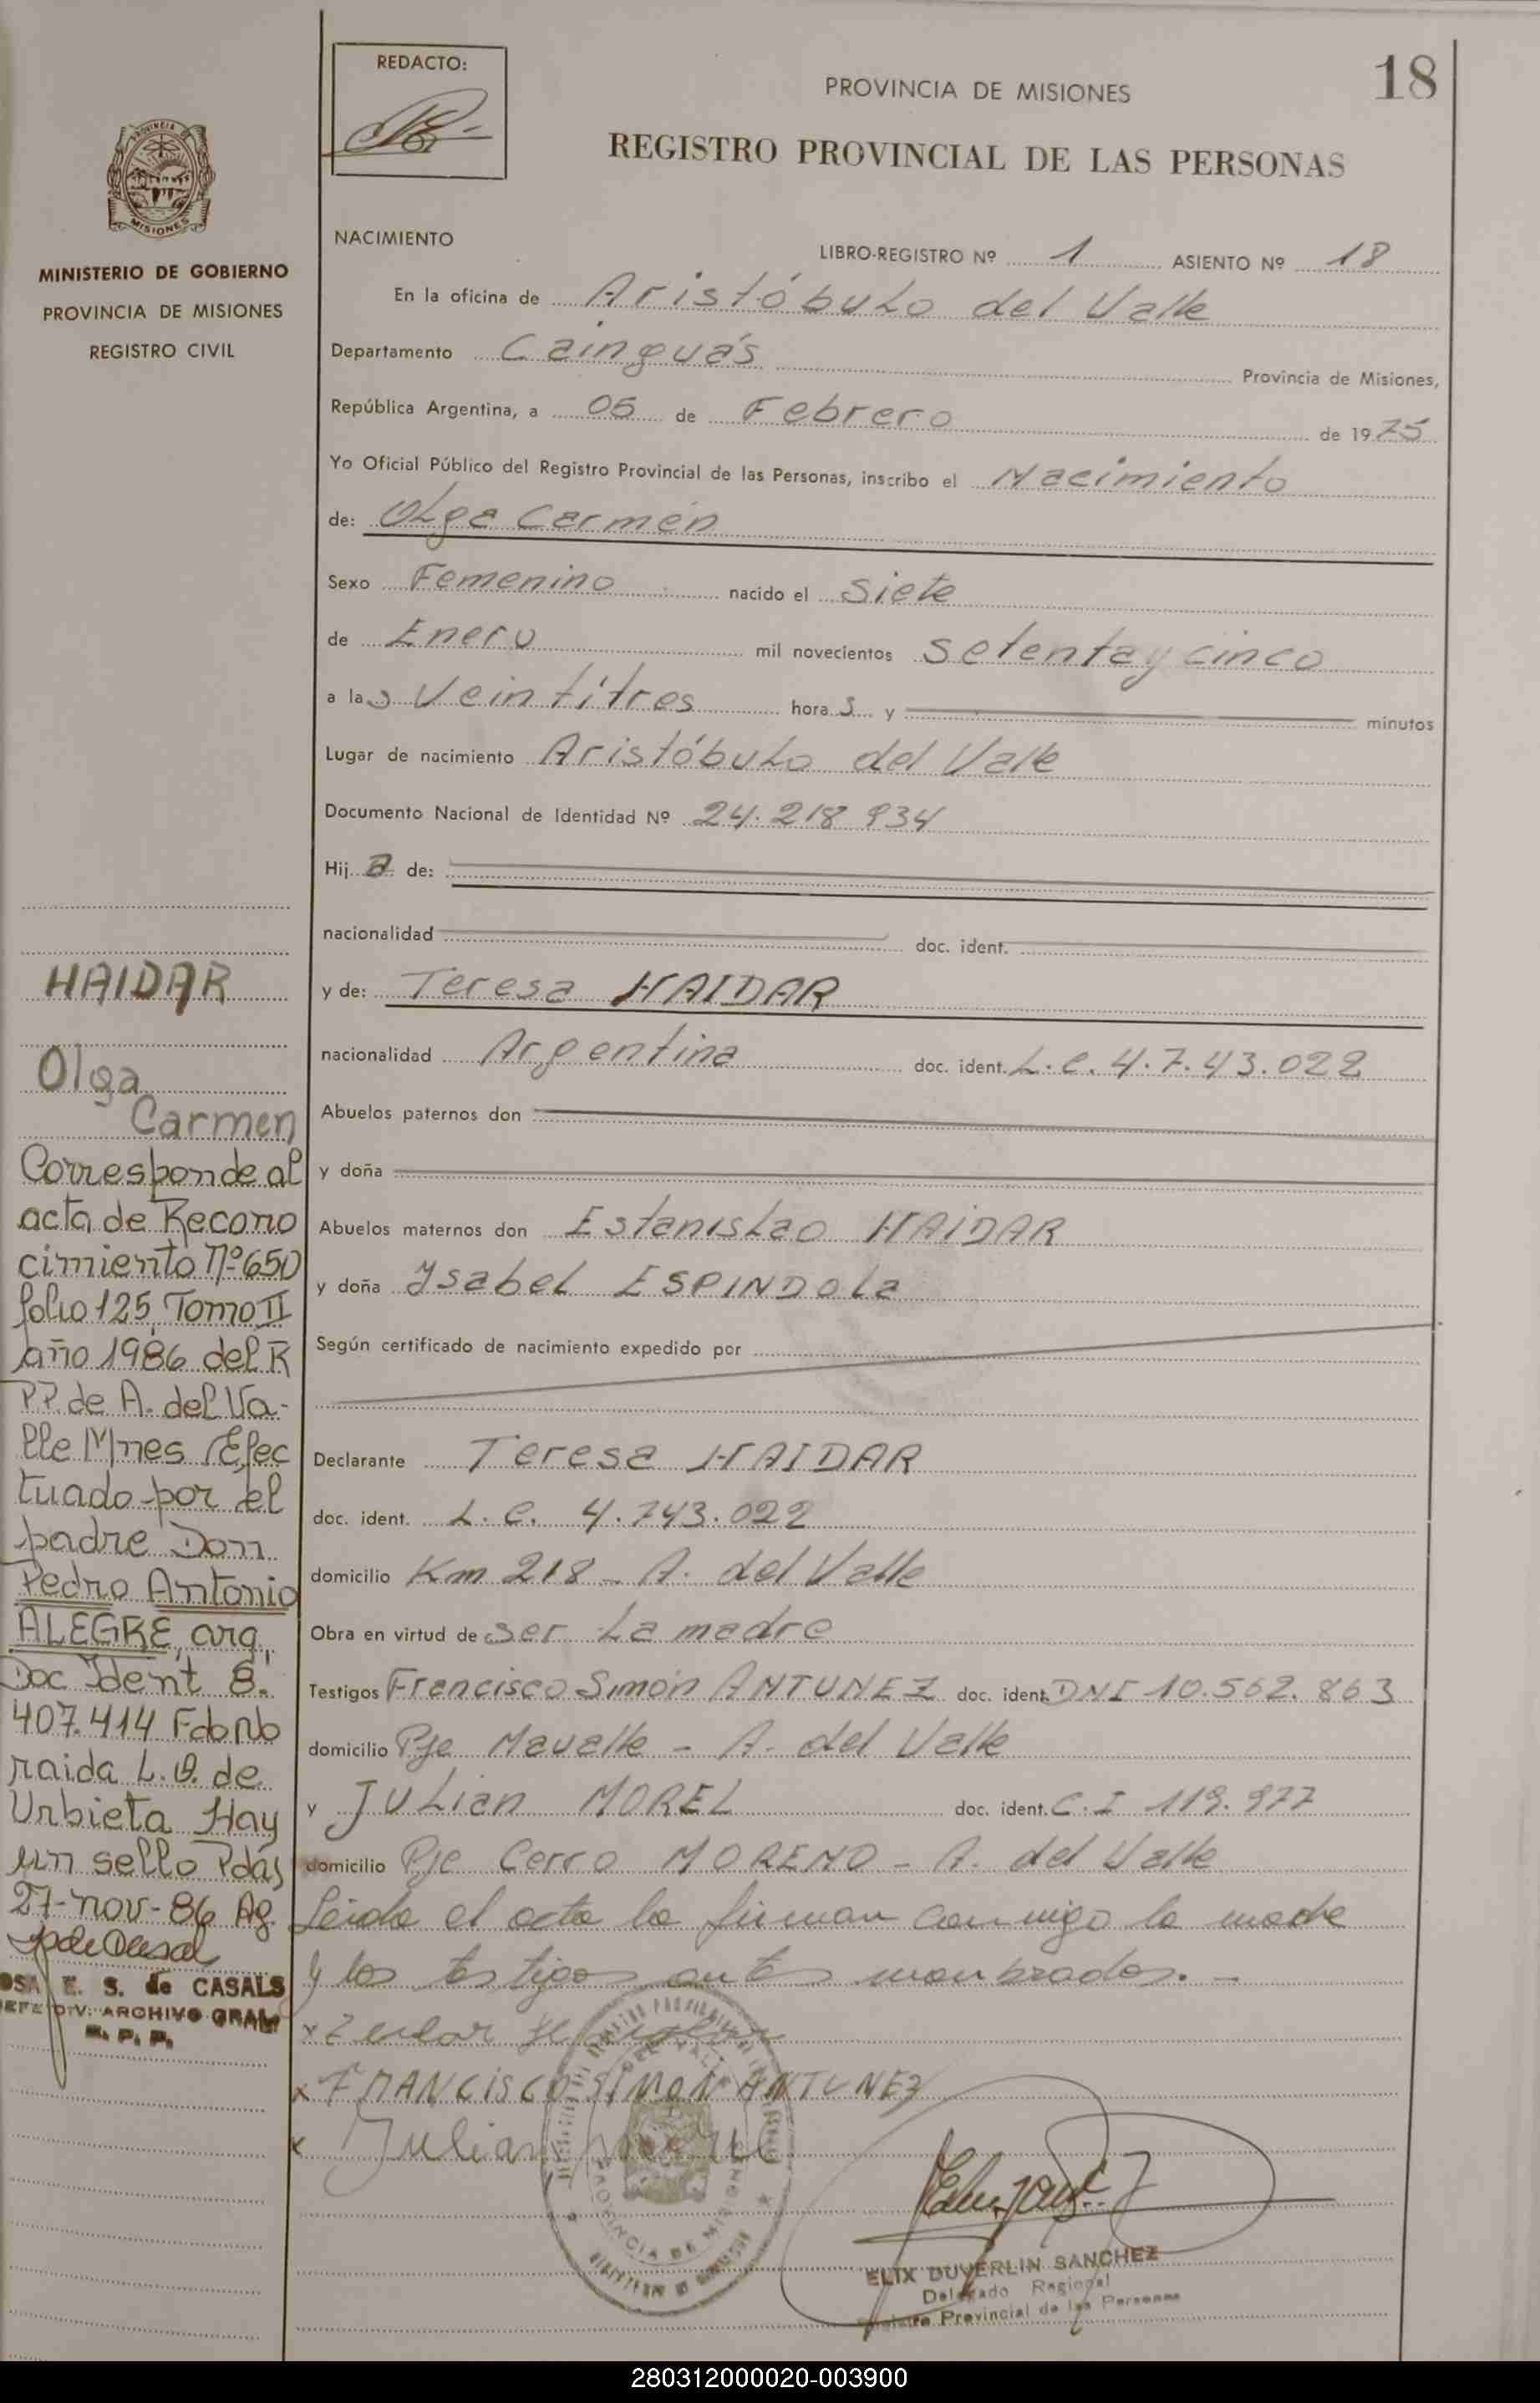 REDACTO:
PROVINCIA DE MISIONES
18
REGISTRO PROVINCIAL DE LAS PERSONAS
PROVINCIA DE
MISIONES
MINISTERIO DE GOBIERNO
PROVINCIA DE MISIONES
REGISTRO CIVIL
NACIMIENTO
LIBRO-REGISTRO Nº 1 ASIENTO Nº 18
En la oficina de Aristóbulo del Valle
Departamento Cainguás Provincia de Misiones,
República Argentina, a 05 de Febrero de 1975
Yo Oficial Público del Registro Provincial de las Personas, inscribo el Nacimiento
de: Olga Carmen
Sexo Femenino nacido el Siete
de Enero mil novecientos setenta y cinco
a las Veintitres horas y minutos
Lugar de nacimiento Aristóbulo del Valle
Documento Nacional de Identidad Nº 24.218 934
Hij a de:
nacionalidad doc. ident.
y de: Teresa HAIDAR
nacionalidad Argentina doc. ident. L.C. 4.7.43.022
Abuelos paternos don
y doña
Abuelos maternos don Estanislao HAIDAR
y doña Ysabel ESPINDOLa
Según certificado de nacimiento expedido por
Declarante Teresa HAIDAR
doc. ident. L.C. 4.743.022
domicilio Km 218 - A. del Valle
Obra en virtud de ser La madre
Testigos Francisco Simón ANTUNEZ doc. ident. DNI 10.562.863
domicilio Pje Mavalle - A. del Valle
y Julian MOREL doc. ident. C.I 119.977
domicilio Pje Cerro MORENO - A. del Valle
Leida el acta la firman conmigo la madre
y los testigos antes nombrados. -
x
x FRANCISCO SIMON ANTUNEZ
x Julian Morel
PROVINCIA DE MISIONES
ELIX DUVERLIN SANCHEZ
Delegado Regional
Registro Provincial de las Personas
HAIDAR
Olga
Carmen
Corresponde al
acta de Recono
cimiento Nº 650
folio 125, Tomo II
año 1986 del R
PP. de A. del Va-
lle Mnes Efec
tuado por el
padre Don
Pedro Antonio
ALEGRE, arg.,
Doc Ident 8.
407.414 Fdo Nb
raida L. O. de
Urbieta Hay
un sello Pdas
27-nov-86 Ag.
OSA E. S. de CASALS
JEFE DIV. ARCHIVO GRAL
R. P. P.
280312000020-003900